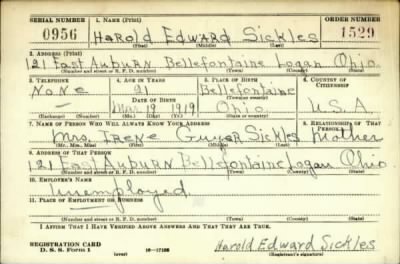 SERIAL NUMBER 1. NAME (Print) ORDER NUMBER
0956 Harold Edward Sickles 1529
(First) (Middle) (Last)
2. ADDRESS (Print)
121 East Auburn Bellefontaine Logan Ohio
(Number and street or R. F. D. number) (Town) (County) (State)
3. TELEPHONE 4. AGE IN YEARS 5. PLACE OF BIRTH 6. COUNTRY OF CITIZENSHIP
None 21 Bellefontaine
DATE OF BIRTH (Town or county)
— Mar. 19 1919 Ohio U.S.A
(Mo.) (Day) (Yr.) (State or country)
7. NAME OF PERSON WHO WILL ALWAYS KNOW YOUR ADDRESS 8. RELATIONSHIP OF THAT PERSON
Mrs. Irene Guyer Sickles Mother
(Mr., Mrs., Miss) (First) (Middle) (Last)
9. ADDRESS OF THAT PERSON
121 East Auburn Bellefontaine Logan Ohio
(Number and street or R. F. D. number) (Town) (County) (State)
10. EMPLOYER'S NAME
Unemployed
11. PLACE OF EMPLOYMENT OR BUSINESS
(Number and street or R. F. D. number) (Town) (County) (State)
I AFFIRM THAT I HAVE VERIFIED ABOVE ANSWERS AND THAT THEY ARE TRUE.
REGISTRATION CARD
D. S. S. Form 1 (over) Harold Edward Sickles
(Registrant's signature)